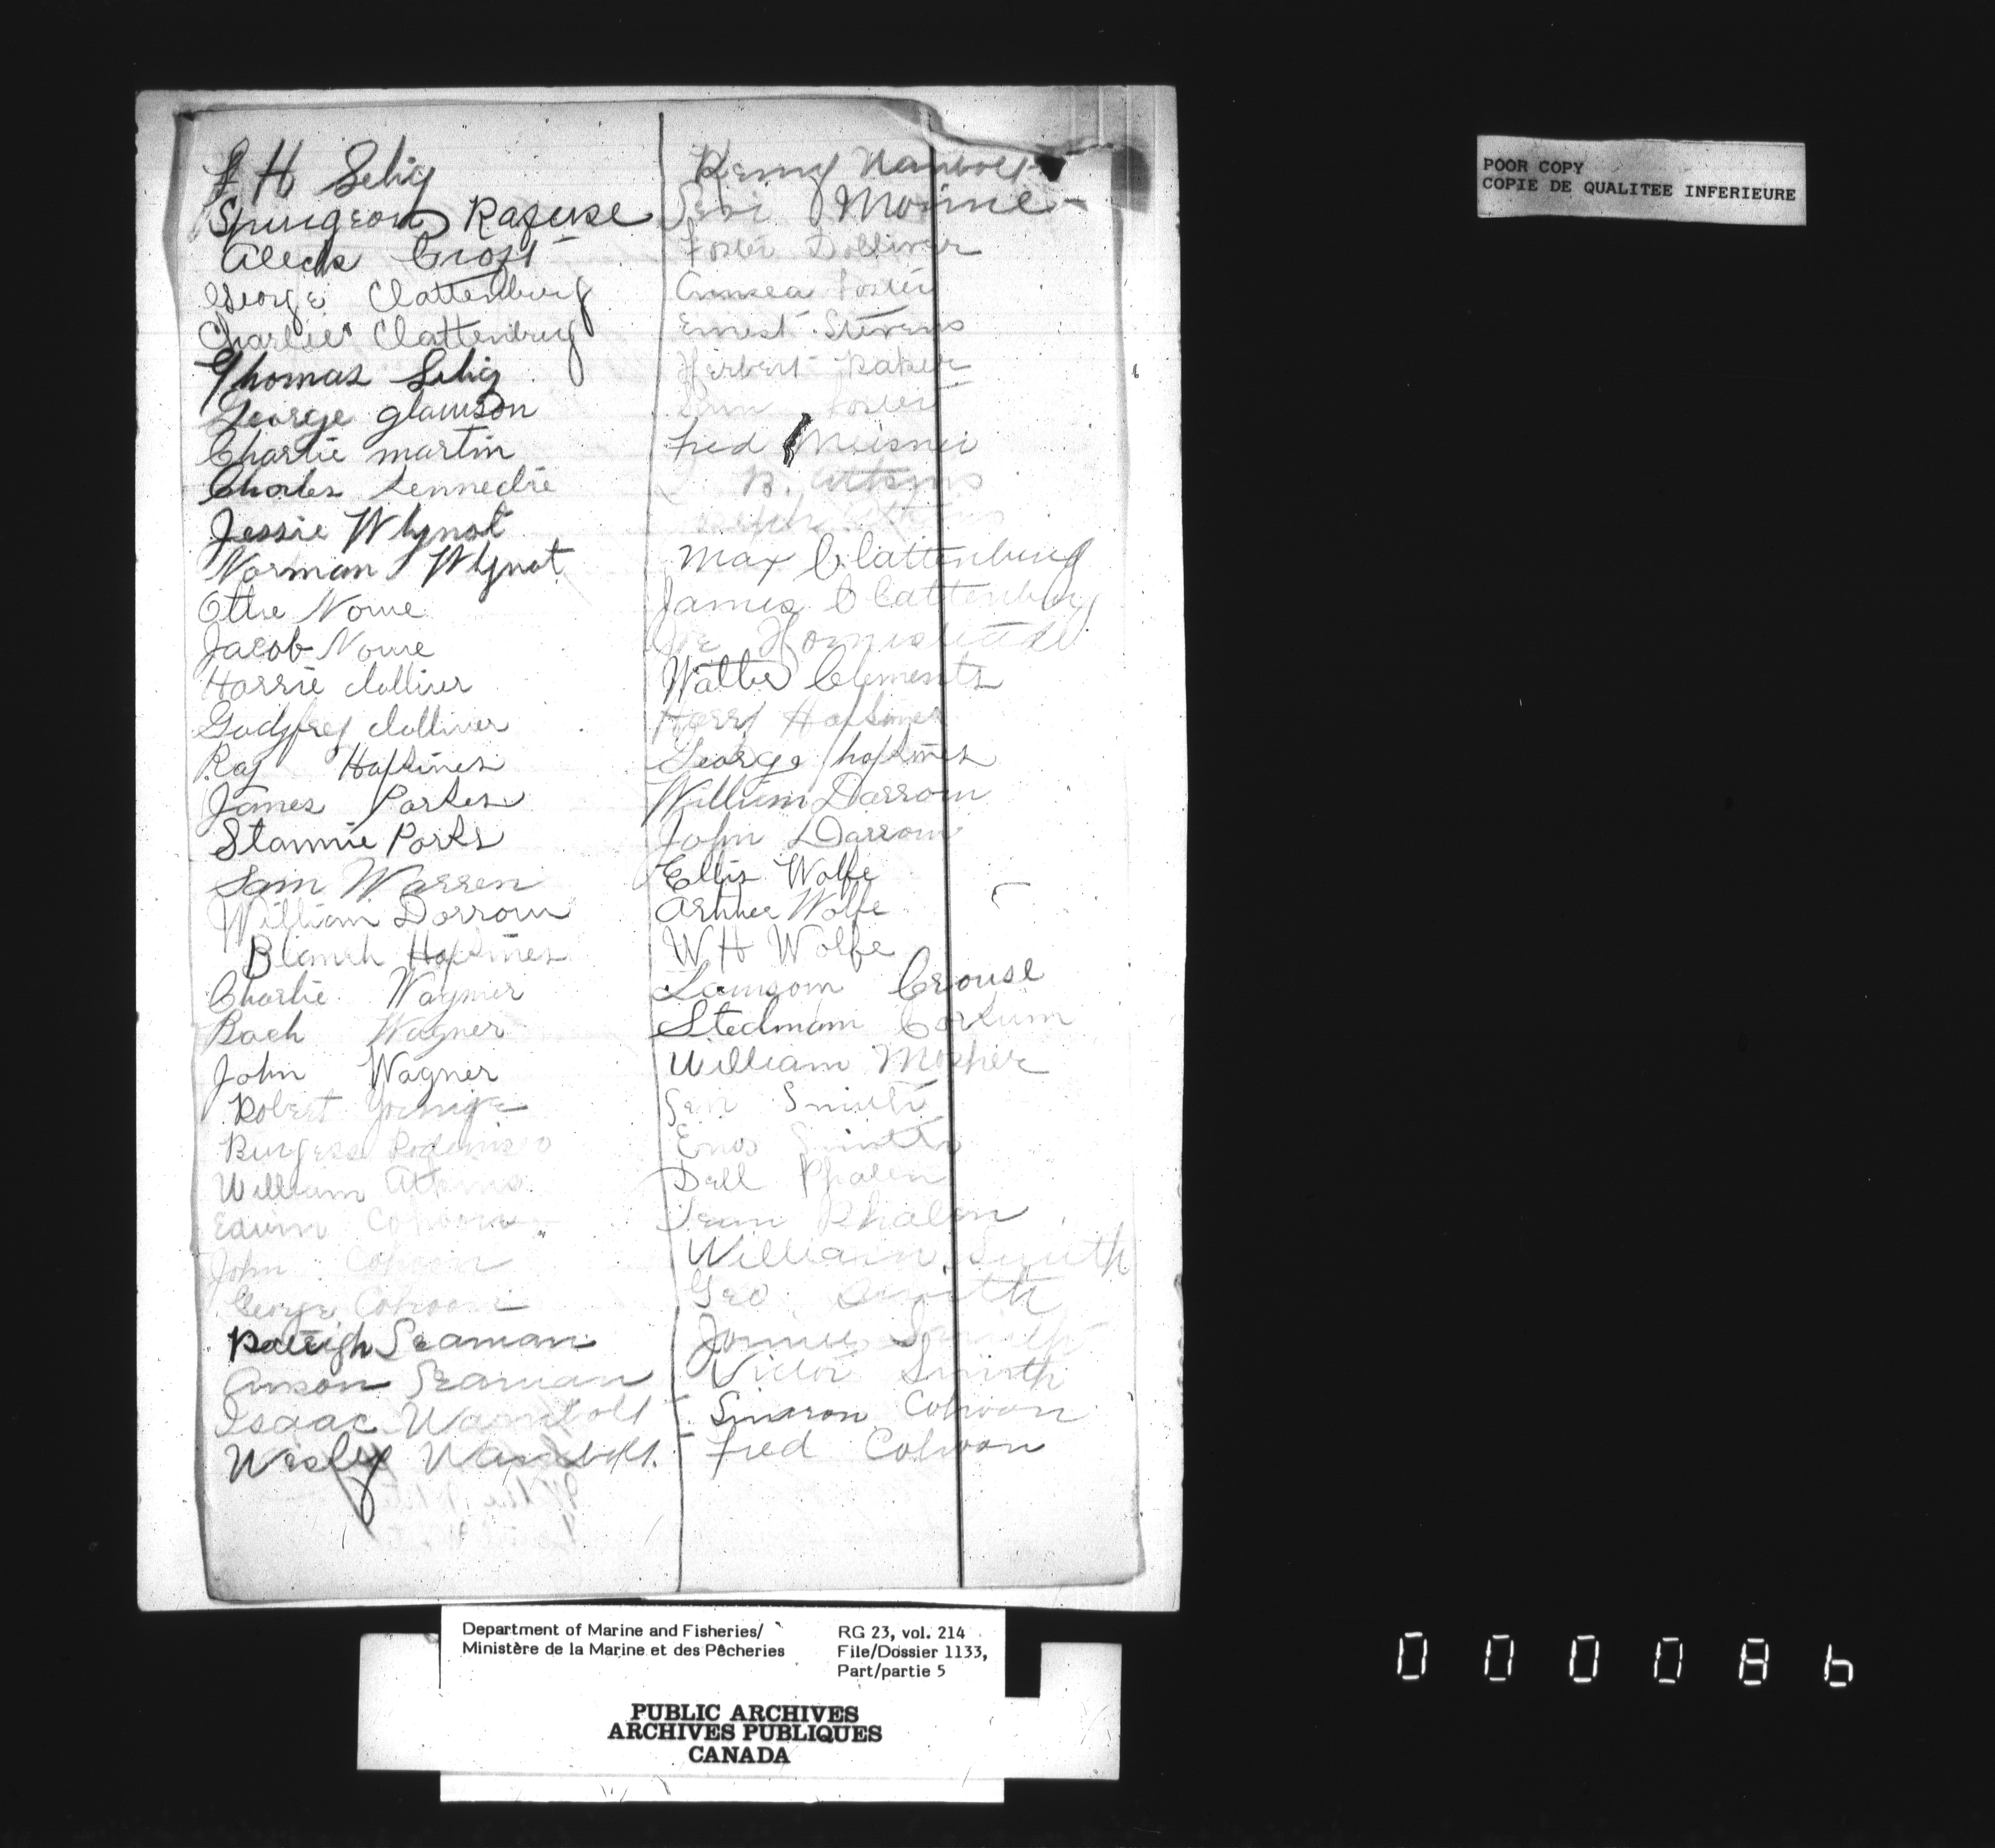 H Selig
Spurgeon Rafuse
Aleck Croft
George Clattenburg
Charlie Clattenburg
Thomas Selig
George glawson
Charlie martin
Charles Kennedie
Jessie Wlynot
Norman Wlynot
Ottie Nowe
Jacob Nowe
Harrie dolliver
Godfrey dolliver
Ray Hopkines
James Parkes
Stannie Parks
Sam Warren
William Dorrow
Blanch Hopkines
Charlie Wagner
Bach Wagner
John Wagner
Robert Younge
Burgess
William Atkins
Edwin Cohoon
John Cohoon
George Cohoon
Raleigh Seaman
Anson Seaman
Isaac Wambolt
Wesley Wambolt
Wambolt
Foster Dolliver
Foster
Ernest Stevens
Herbert Baker
Foster
Fred Meisner
B. Atkins
Atkins
Max Clattenburg
James Clattenburg
Walter Clements
Harry Hopkines
George hopkines
William Darrow
John Darrow
Ellis Wolfe
Arther Wolfe
W H Wolfe
Crouse
Stedman Corkum
William Mosher
Smith
Enos Smith
Dell Phalen
Phalen
William Smith
Geo Smith
Smith
Victor Smith
Simeon Cohoon
Fred Cohoon
POOR COPY
COPIE DE QUALITEE INFERIEURE
Department of Marine and Fisheries/
Ministère de la Marine et des Pêcheries
RG 23, vol. 214
File/Dossier 1133,
Part/partie 5
PUBLIC ARCHIVES
ARCHIVES PUBLIQUES
CANADA
000086